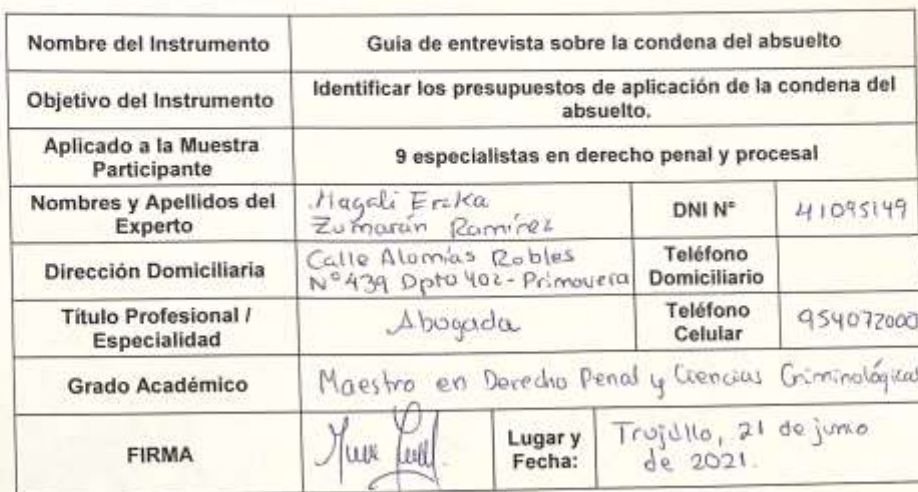 Nombre del Instrumento
Guia de entrevista sobre la condena del absuelto
Objetivo del Instrumento
Identificar los presupuestos de aplicación de la condena del
absuelto.
Aplicado a la Muestra
Participante
9 especialistas en derecho penal y procesal
Nombres y Apellidos del
Experto
Magali Erika
Zumarán Ramírez
DNI N°
41095149
Dirección Domiciliaria
Calle Alomías Robles
N°439 Dpto 402 - Primavera
Teléfono
Domiciliario
Título Profesional /
Especialidad
Abogada
Teléfono
Celular
954072000
Grado Académico
Maestro en Derecho Penal y Ciencias Criminológicas
FIRMA
Lugar y
Fecha:
Trujillo, 21 de junio
de 2021.